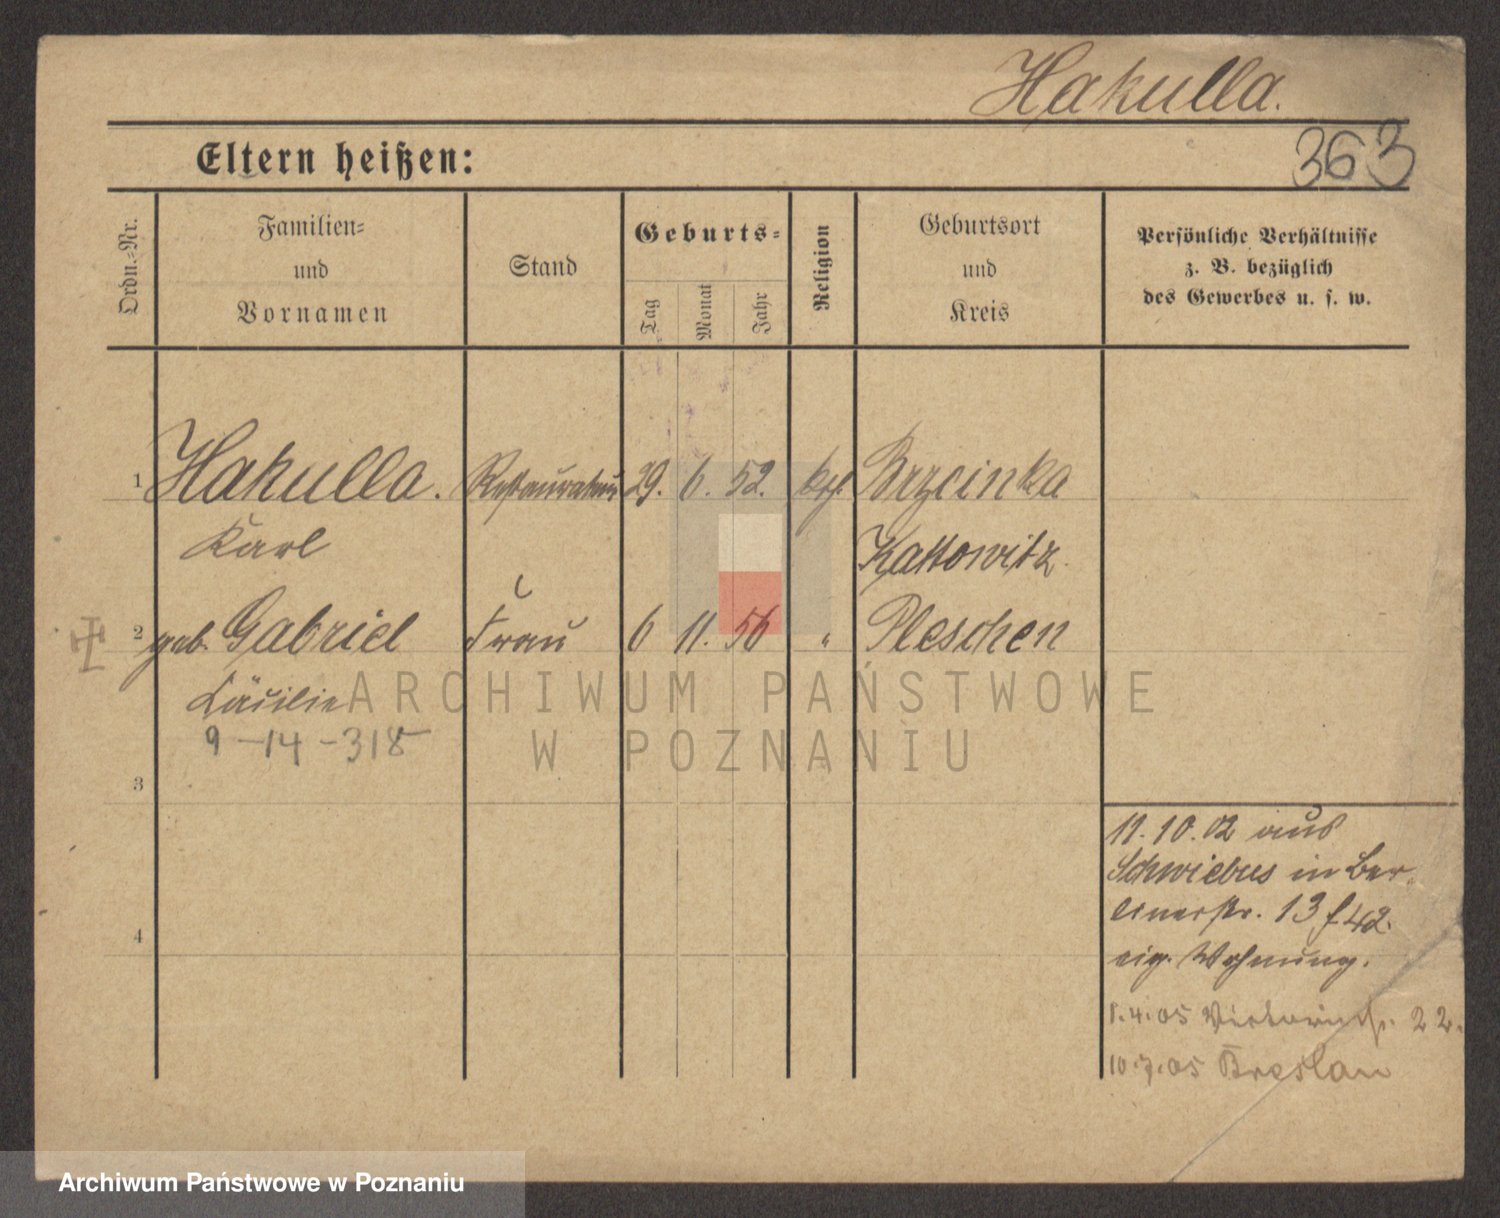 Hakulla.
363
Eltern heißen:
Ordn.-Nr.
Familien-
und
Vornamen
Stand
Geburts-
Tag
Monat
Jahr
Religion
Geburtsort
und
Kreis
Persönliche Verhältnisse
z. B. bezüglich
des Gewerbes u. s. w.
1 Hakulla. Restaurateur 29. 6. 52. Brzcinka
Karl Kattowitz
2 geb. Gabriel Frau 6 11. 56 " Pleschen
Cäcilie
9-14-318
3
4
11.10.02 aus
Schwiebus in Ber-
linerstr. 13 f 42.
eig. Wohnung.
1.4.05 Victoriastr. 22.
10.7.05 Breslau
ARCHIWUM PAŃSTWOWE
W POZNANIU
Archiwum Państwowe w Poznaniu